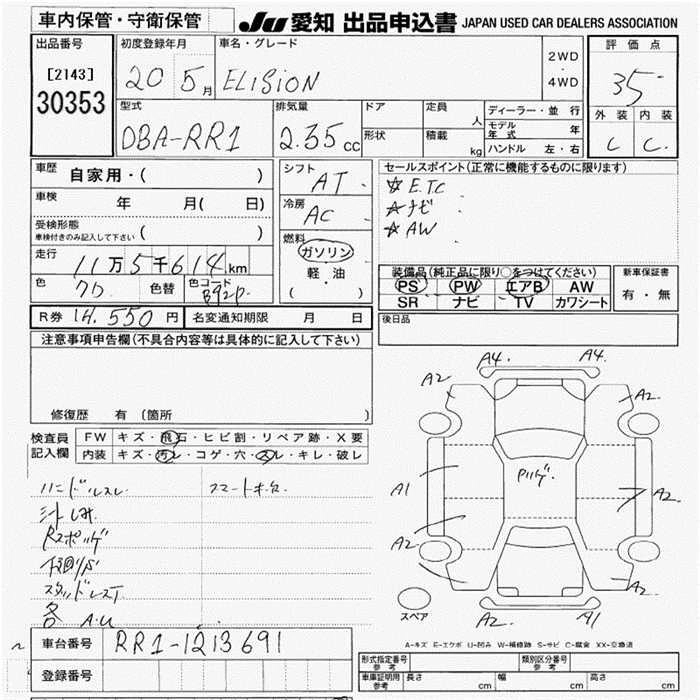 車内保管・守衛保管 JU愛知 出品申込書 JAPAN USED CAR DEALERS ASSOCIATION
出品番号 初度登録年月 車名・グレード 2WD・4WD 評価点
[2143] 30353 20 5月 ELISION 3.5
型式 排気量 ドア 定員 人 ディーラー・並行 外装 内装
DBA-RR1 2.35cc 形状 積載 kg モデル年式 年 C C
ハンドル 左・右
車歴 自家用・( ) シフト AT セールスポイント(正常に機能するものに限ります)
車検 年 月( 日) 冷房 AC ☆ E.T.C
受検形態 車検付きのみ記入して下さい ( ) ☆ ナビ
☆ AW
走行 11万5千614km 燃料 ガソリン・軽油 ( )
色 色替 色コード B92P
装備品(純正品に限り○をつけてください) 新車保証書
PS PW エアB AW 有・無
SR ナビ TV カワシート
R券 14,550円 名変通知期限 月 日 後日品
注意事項申告欄(不具合内容等は具体的に記入して下さい)
修復歴 有 (箇所
検査員記入欄 FW キズ・飛石・ヒビ割・リペア跡・X要
内装 キズ・汚レ・コゲ・穴・スレ・キレ・破レ
ハンドルスレ
シートしみ
各 A.U
A4. A4.
A2 A2.
A1 A2.
A2. A2.
A2 A1
スペア
A-キズ E-エクボ U-凹み W-補修跡 S-サビ C-腐食 XX-交換済
車台番号 RR1-1213691
登録番号
形式指定番号 参考 類別区分番号 参考
車庫証明用 参考 長さ cm 幅 cm 高さ cm